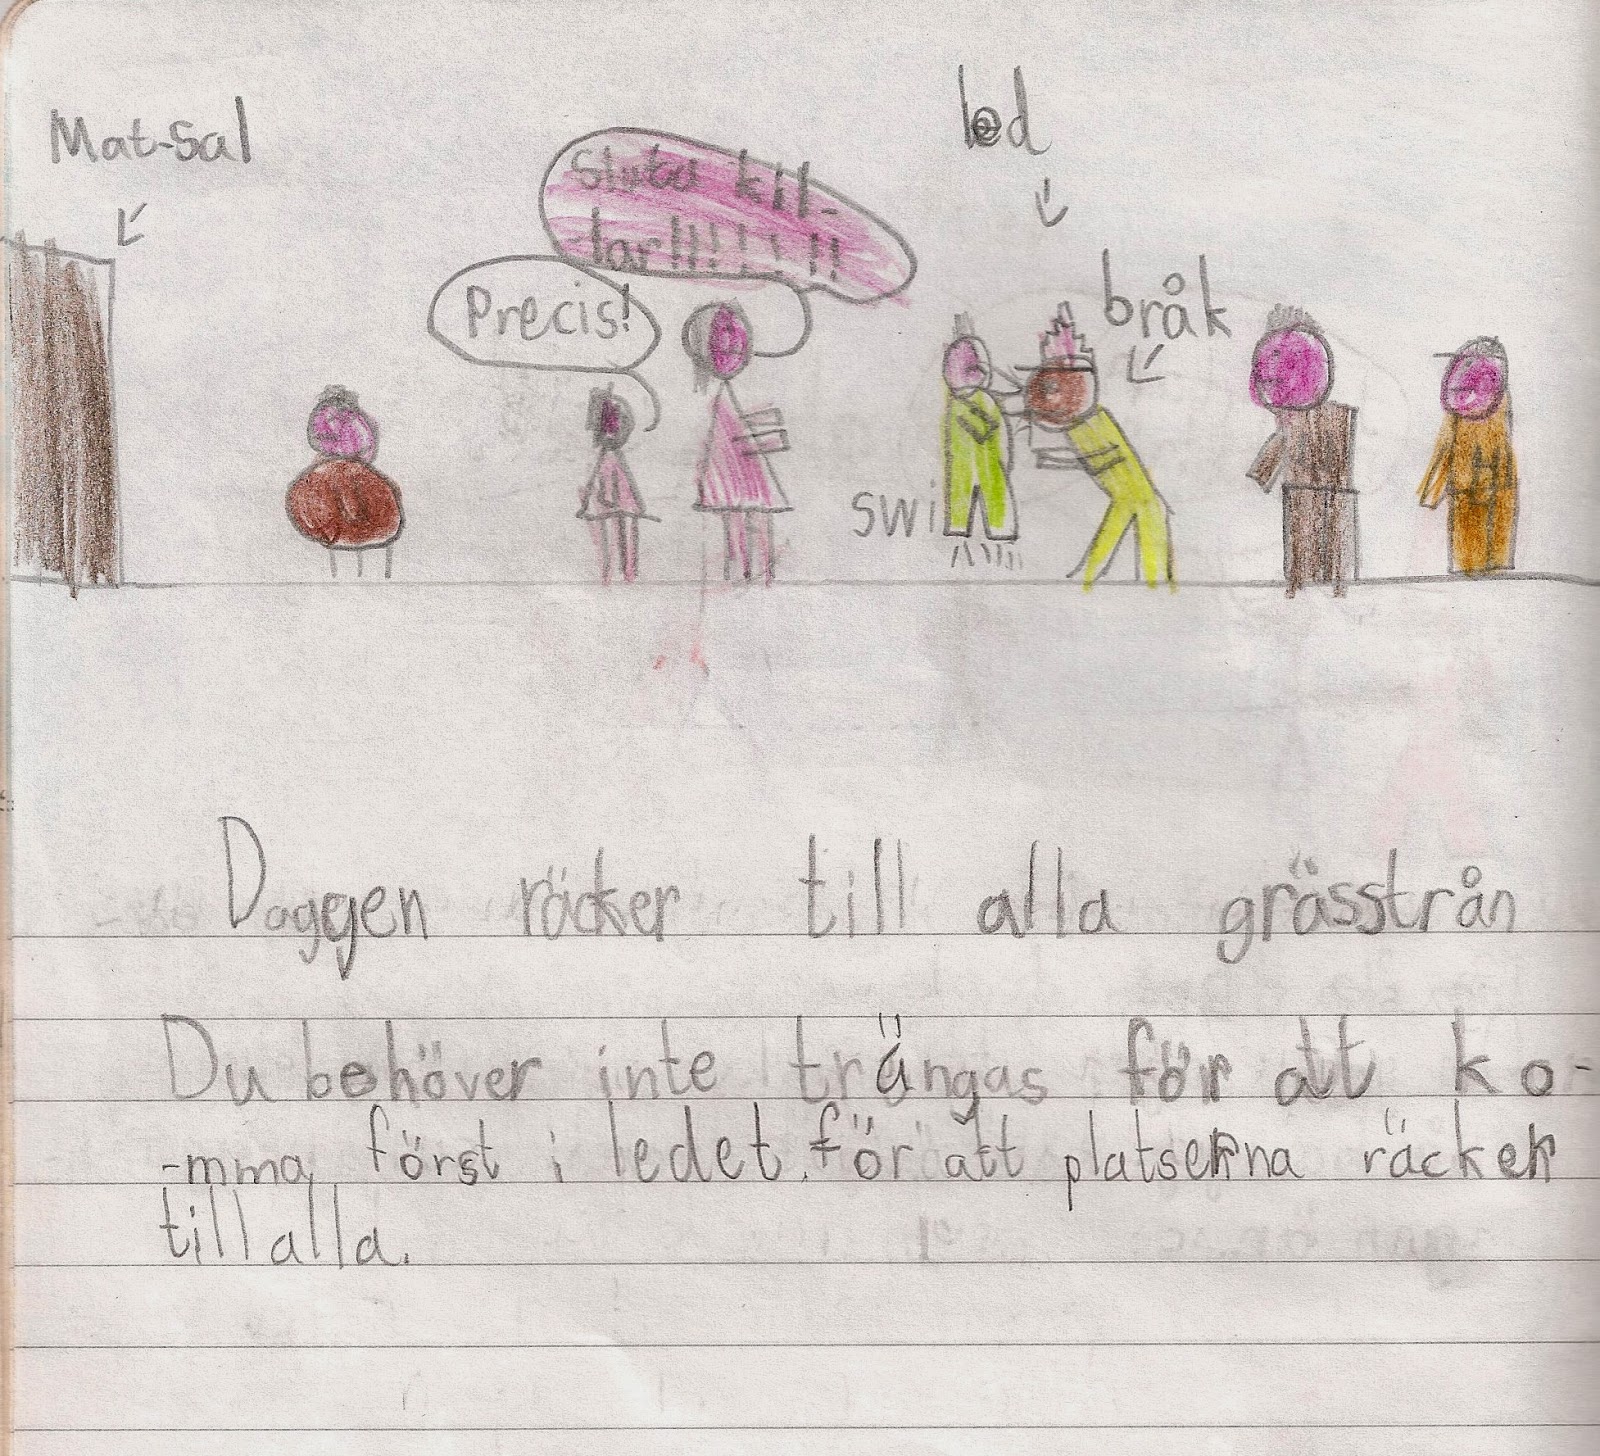 Mat-Sal
led
Sluta kil-
lar!!!!!!!
Precis!
bråk
swi
Daggen räcker till alla grässtrån
Du behöver inte trängas för att ko-
-mma först i ledet. för att platserna räcker
till alla.